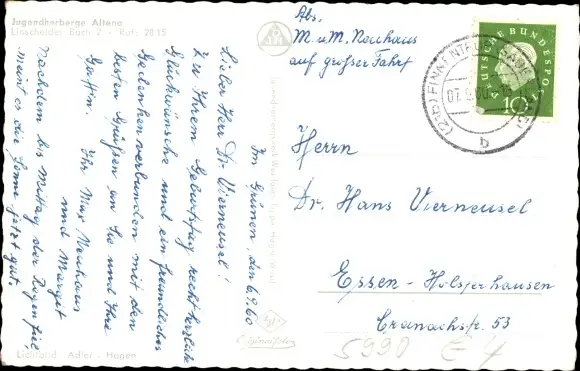 Jugendherberge Altena
Linscheider Bach 2 - Ruf: 2815
Im Grünen, den 6.9.60
Lieber Herr Dr. Vierneusel!
Zu Ihrem Geburtstag recht herzliche
Glückwünsche und ein freundliches
Gedenken verbunden mit den
besten Grüßen an Sie und Ihre
Gattin. Ihr Max Neuhaus
und Marget
Nachdem bis Mittag der Regen fiel,
meint es die Sonne jetzt gut.
Lichtbild Adler - Hagen
Originalfoto
Abs.
M. u. M. Neuhaus
auf großer Fahrt
DEUTSCHE BUNDESPOST
10
(21b) FINNENTROP
b
Herrn
Dr. Hans Vierneusel
Essen - Holsterhausen
Cranachstr. 53
5990 E4